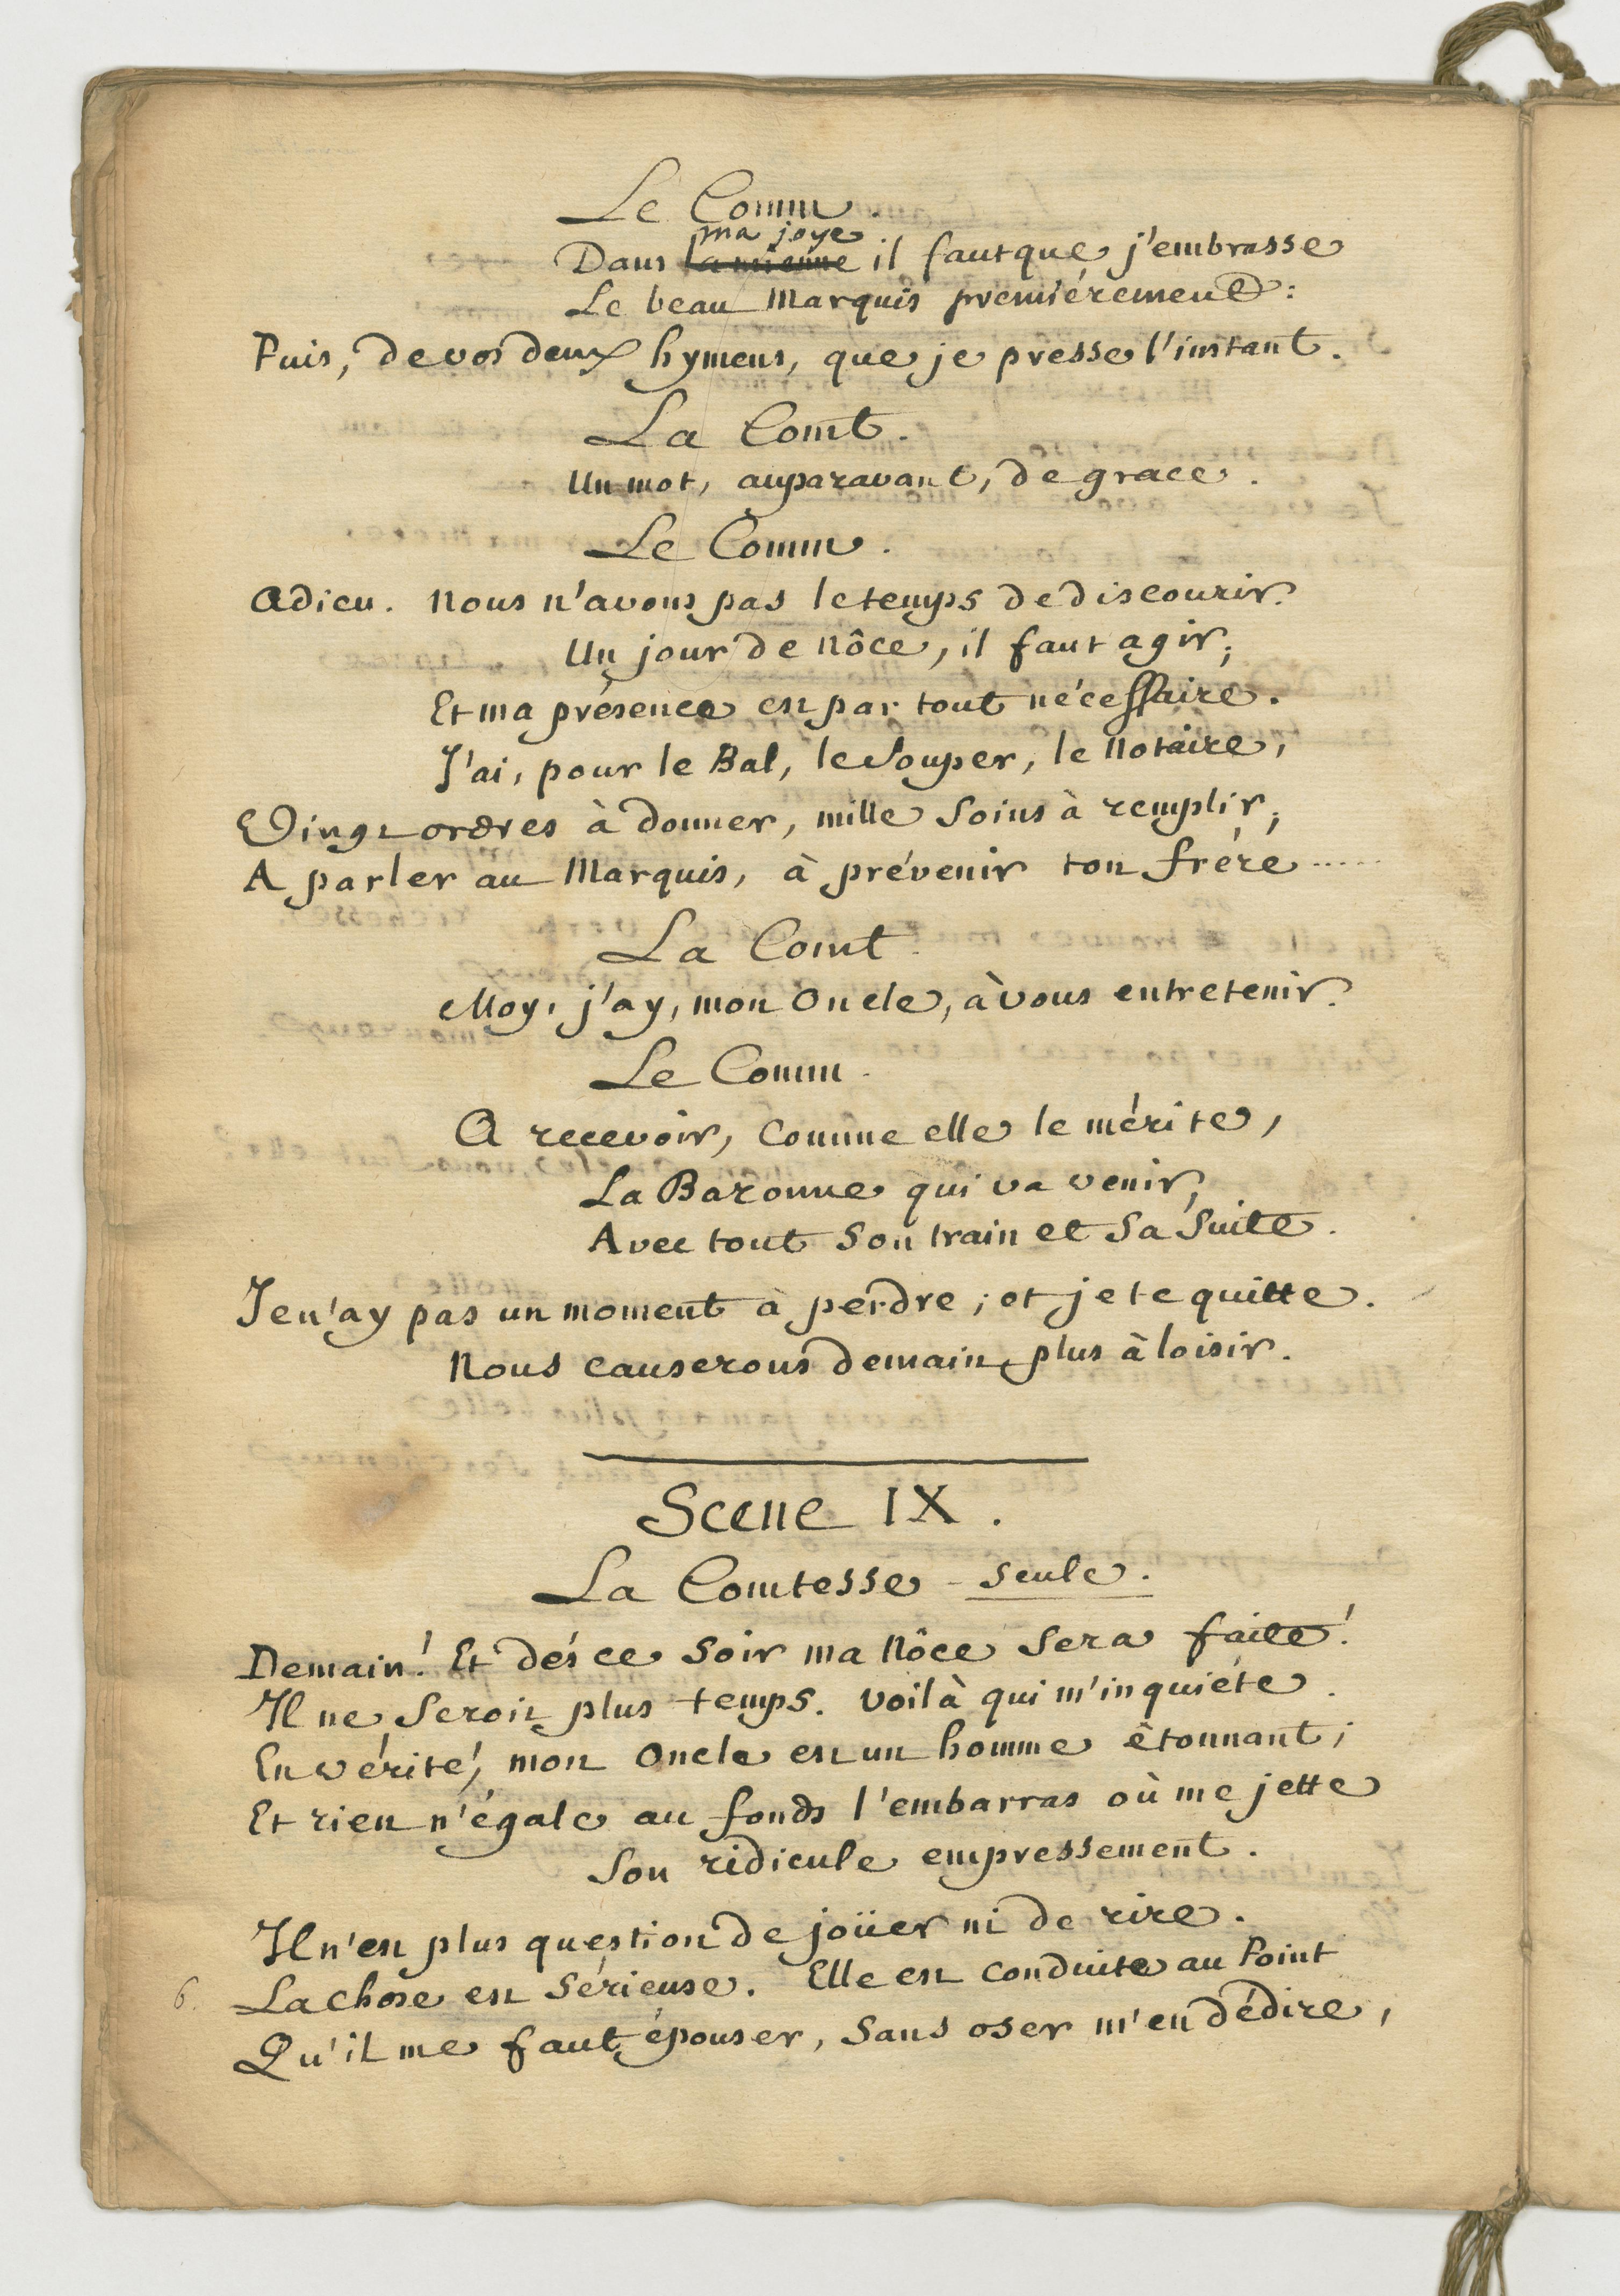 Le Comm.
ma joye
Dans la mienne il faut que j'embrasse
Le beau Marquis premiérement:
Puis, de vos deux hymens, que je presse l'instant.
La Comt.
Un mot, auparavant, de grace.
Le Comm.
Adieu. Nous n'avons pas le temps de discourir.
Un jour de Nôce, il faut agir;
Et ma présence est par tout nécessaire.
J'ai, pour le Bal, le Souper, le Notaire,
Vingt ordres à donner, mille Soins à remplir;
A parler au Marquis, à prévenir ton frére .....
La Comt.
Moy, j'ay, mon Oncle, à vous entretenir.
Le Comm.
A recevoir, Comme elle le mérite,
La Baronne qui va venir,
Avec tout Son train et Sa Suite.
Je n'ay pas un moment à perdre; et je te quitte.
Nous causerons demain plus à loisir.
Scene IX.
La Comtesse - seule.
Demain! Et dés ce Soir ma Nôce Sera faite!
Il ne Seroit plus temps. Voilà qui m'inquiéte.
En vérité, mon Oncle est un homme étonnant;
Et rien n'égale au fonds l'embarras où me jette
Son ridicule empressement.
Il n'est plus question de joüer ni de rire.
6. La chose est Sérieuse. Elle est Conduite au Point
Qu'il me faut épouser, Sans oser m'en dédire,